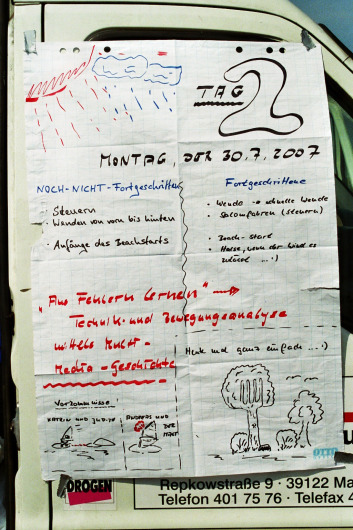 TAG 2
MONTAG, DER 30.7.2007
NOCH-NICHT-Fortgeschritten
· Steuern
· Wenden von vorn bis hinten
· Anfänge des Beachstarts
Fortgeschrittene
· Wende → schnelle Wende
· Slalomfahren (steuern)
· Beach-Start
· Halse, wenn der Wind es
zulässt ...:)
"Aus Fehlern lernen" →
Technik- und Bewegungsanalyse
mittels Multi-
Media-Geschichte
Heute mal ganz einfach ...:)
Vorkommnisse
KATRIN UND
ANDREAS UND
DER
OTTO
DROGEN
Repkowstraße 9 · 39122 Ma
Telefon 401 75 76 · Telefax 4